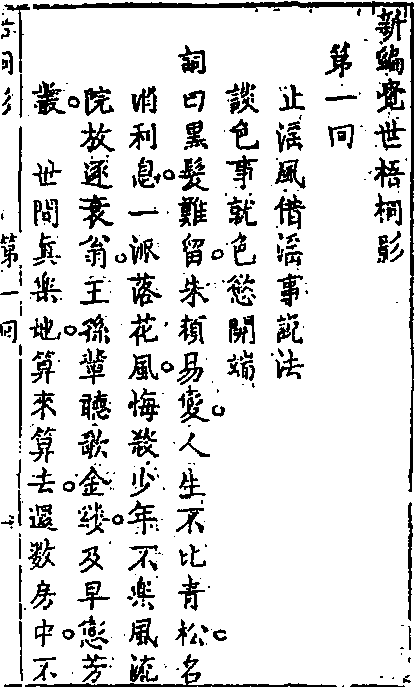 新編覺世梧桐影
第一回
止淫風借淫事説法
談色事就色慾開端
詞曰黑髮難留。朱顔易變。人生不比青松。名
消利息。一派落花風。悔殺少年不樂風流
院放逐衰翁。王孫輩聽歌金縷。及早戀芳
叢。　世間眞樂地。算來算去。還數房中。不
第一回